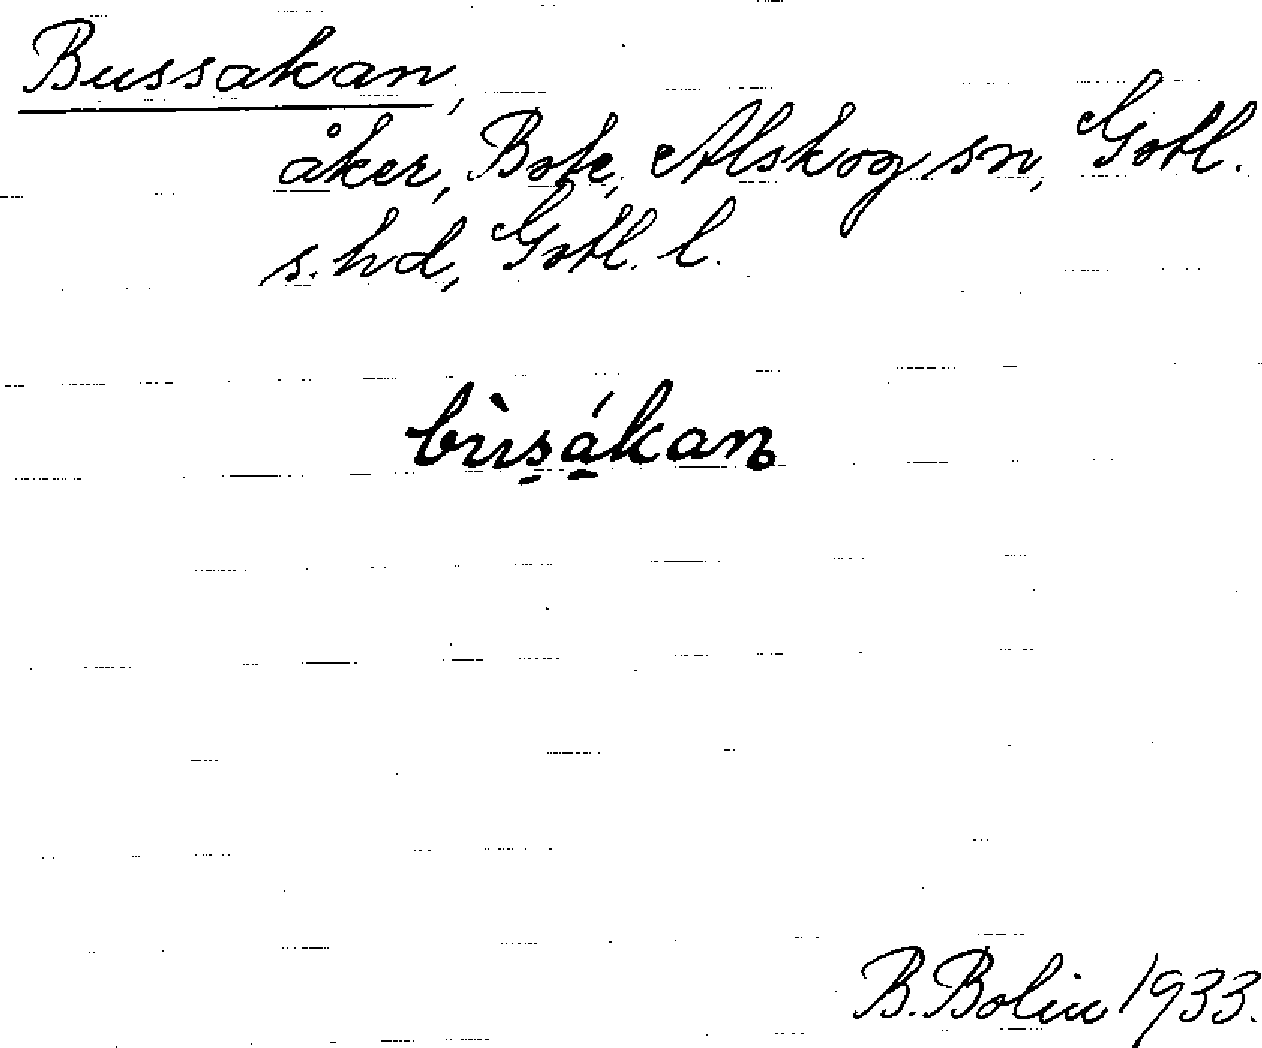 Bussakan,
åker, Bote, Alskog sn, Gotl.
s. hd, Gotl. l.
bùsákan
B. Bolin 1933.